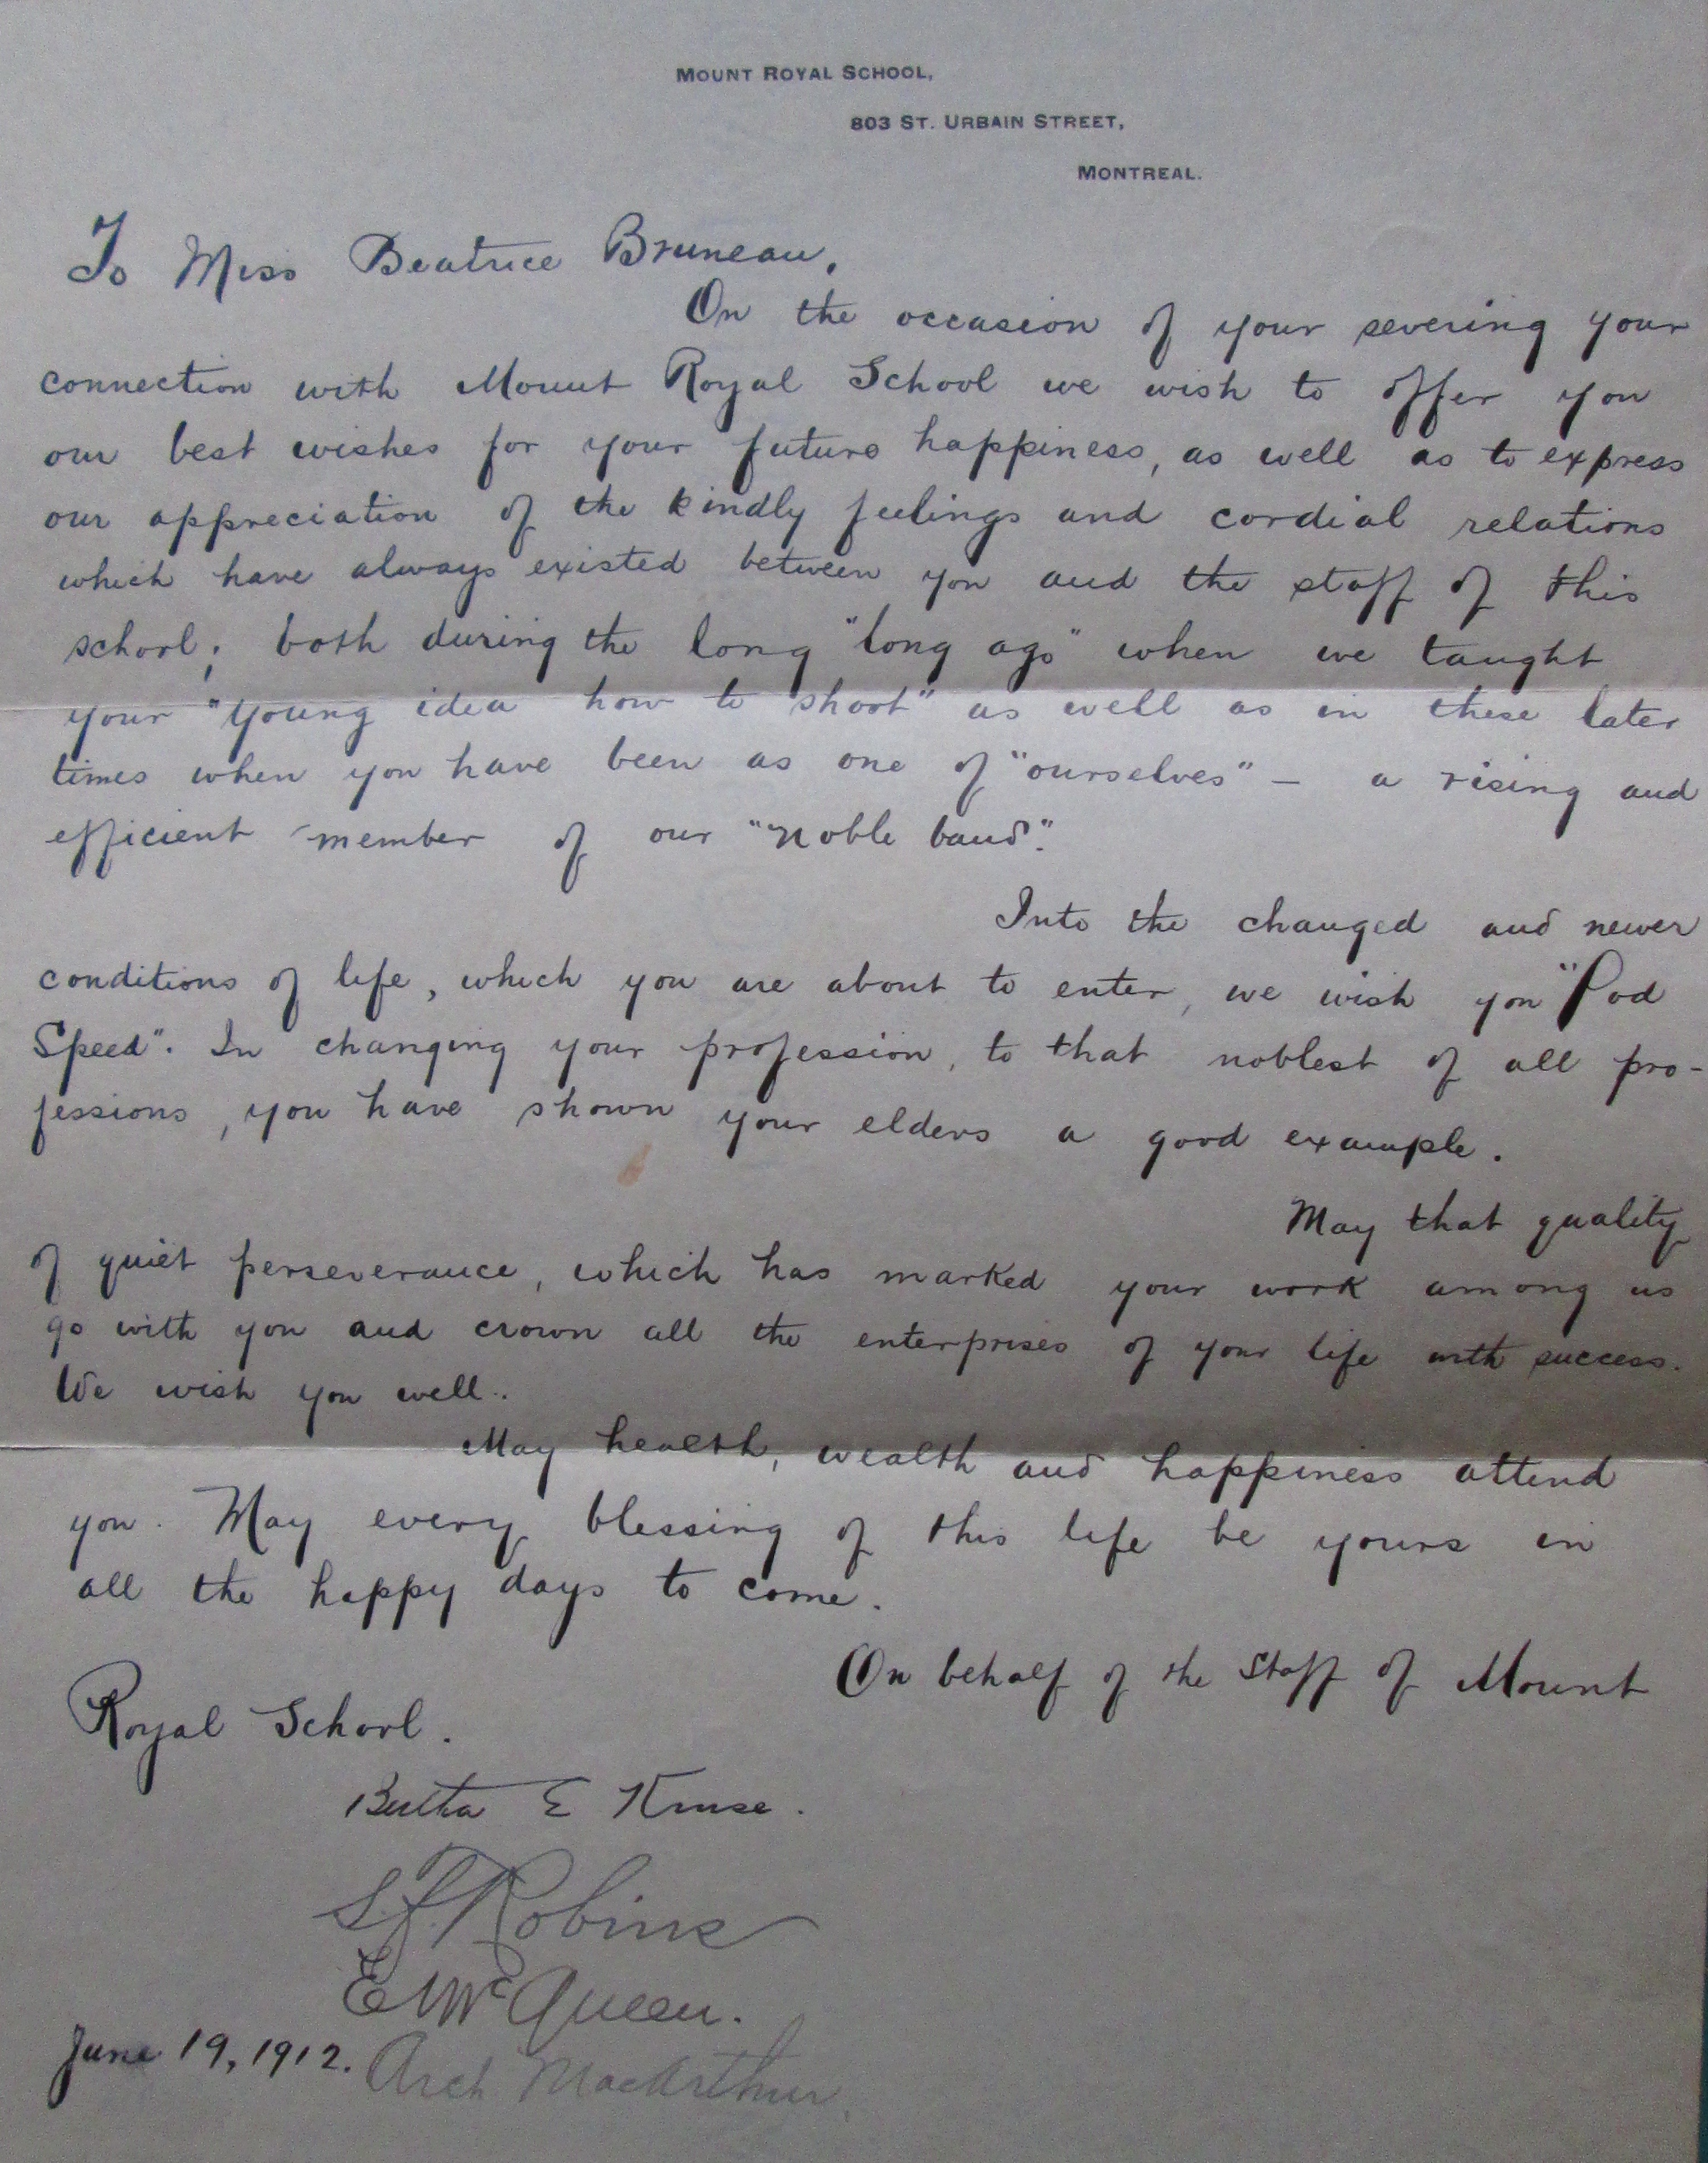 MOUNT ROYAL SCHOOL,
803 ST. URBAIN STREET,
MONTREAL.
To Miss Beatrice Bruneau,
On the occasion of your severing your
connection with Mount Royal School we wish to offer you
our best wishes for your future happiness, as well as to express
our appreciation of the kindly feelings and cordial relations
which have always existed between you and the staff of this
school; both during the long "long ago" when we taught
your "young idea how to shoot" as well as in these later
times when you have been as one of "ourselves" — a rising and
efficient member of our "noble band".
Into the changed and newer
conditions of life, which you are about to enter, we wish you "God
Speed". In changing your profession, to that noblest of all pro-
fessions, you have shown your elders a good example.
May that quality
of quiet perseverance, which has marked your work among us
go with you and crown all the enterprises of your life with success.
We wish you well.
May health, wealth and happiness attend
you. May every blessing of this life be yours in
all the happy days to come.
On behalf of the Staff of Mount
Royal School.
Bertha E Kruse.
S. F. Robins
E McQueen.
June 19, 1912.
Arch MacArthur.